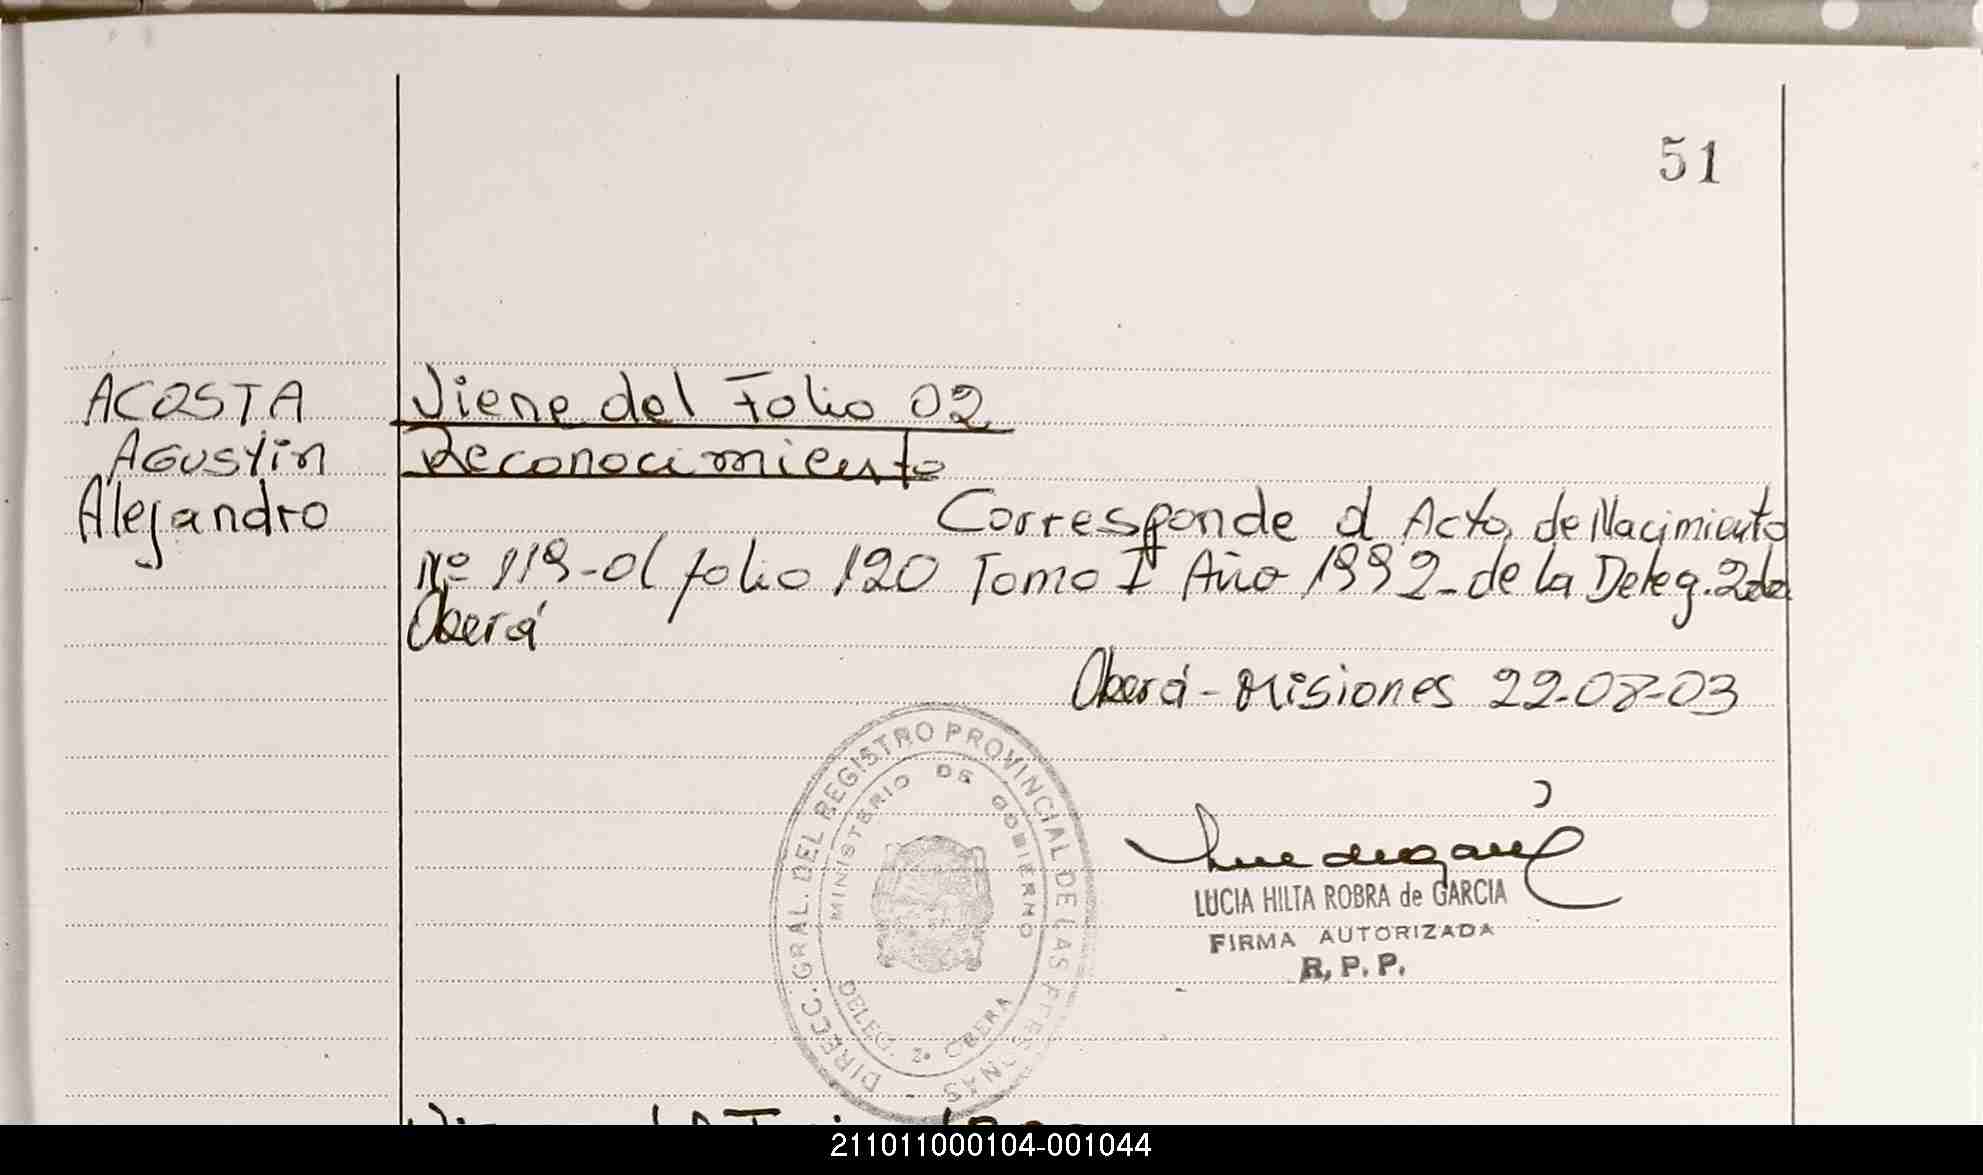 51
ACOSTA
Agustín
Alejandro
Viene del Folio 02
Reconocimiento
Corresponde al Acta de Nacimiento
Nº 119-al folio 120 Tomo Iº Año 1992-de la Deleg. 2da
Oberá
Oberá-Misiones 22-08-03
DIRECC. GRAL. DEL REGISTRO PROVINCIAL DE LAS PERSONAS
MINISTERIO DE GOBIERNO
DELEG. 2º OBERA
LUCIA HILTA ROBRA de GARCIA
FIRMA AUTORIZADA
R.P.P.
211011000104-001044